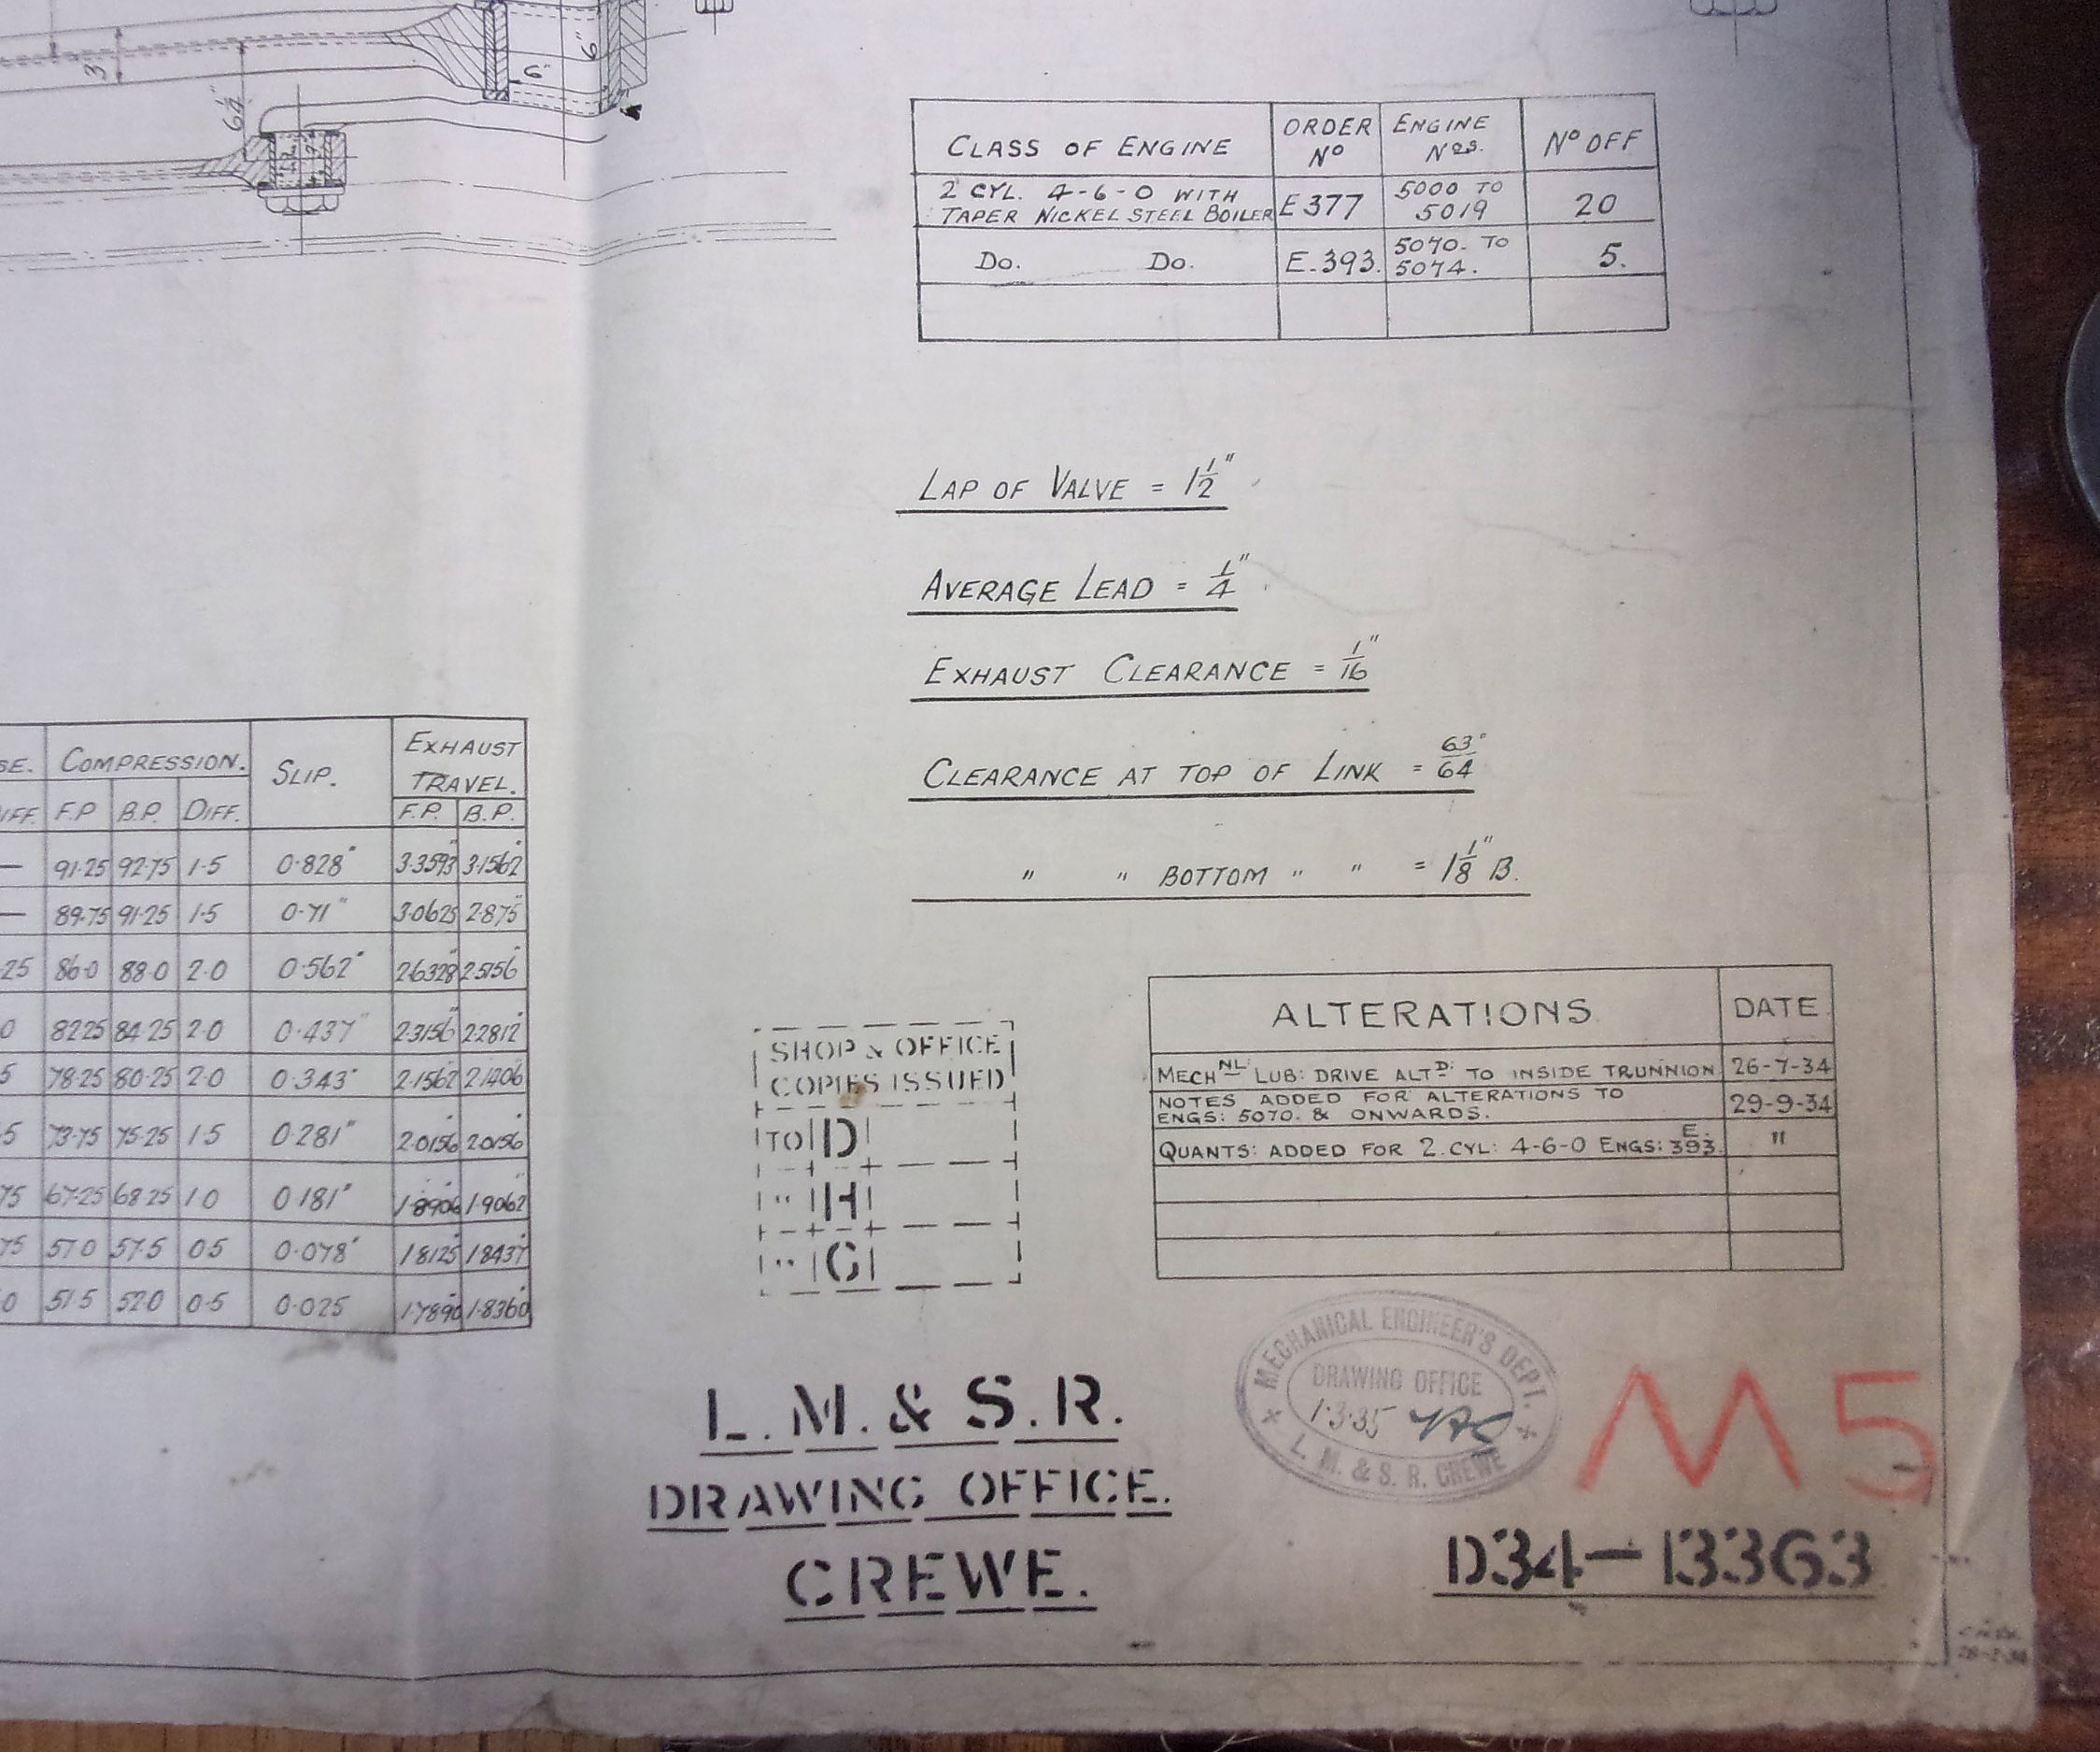 3"
6¼"
6"
6"
CLASS OF ENGINE ORDER Nº ENGINE Nos. Nº OFF
2 CYL. 4-6-0 WITH TAPER NICKEL STEEL BOILER E377 5000 TO 5019 20
Do. Do. E.393. 5070. TO 5074. 5.
LAP OF VALVE = 1½"
AVERAGE LEAD = ¼"
EXHAUST CLEARANCE = 1/16"
CLEARANCE AT TOP OF LINK = 63/64"
" " BOTTOM " " = 1⅛" B.
SE. COMPRESSION. SLIP. EXHAUST TRAVEL.
IFF. F.P B.P. DIFF. F.P. B.P.
— 91·25 92·75 1·5 0·828" 3·3593" 3·1562"
— 89·75 91·25 1·5 0·71" 3·0625 2·875"
25 86·0 88·0 2·0 0·562" 2·6328" 2·5156"
0 82·25 84·25 2·0 0·437" 2·3156" 2·2812"
5 78·25 80·25 2·0 0·343" 2·1562" 2·1406"
5 73·75 75·25 1·5 0·281" 2·0156" 2·0156"
75 67·25 68·25 1·0 0·181" 1·8906" 1·9062"
75 57·0 57·5 0·5 0·078" 1·8125" 1·8437"
0 51·5 52·0 0·5 0·025 1·7890" 1·8360"
SHOP & OFFICE
COPIES ISSUED
TO D
" H
" G
ALTERATIONS DATE
MECHNL: LUB: DRIVE ALTD: TO INSIDE TRUNNION 26-7-34
NOTES ADDED FOR ALTERATIONS TO
ENGS: 5070. & ONWARDS. 29-9-34
QUANTS: ADDED FOR 2.CYL: 4-6-0 ENGS: E. 393. "
MECHANICAL ENGINEER'S DEPT.
DRAWING OFFICE
1·3·35
L. M. & S. R. CREWE
M5
L.M.& S.R.
DRAWING OFFICE.
CREWE.
D34-13363